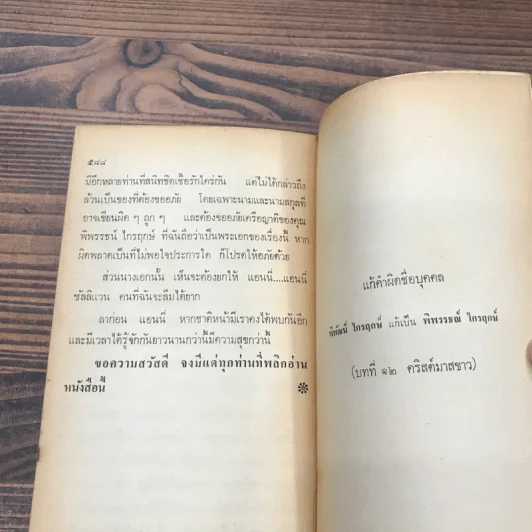 ๕๘๘
มีอีกหลายท่านที่สนิทชิดเชื้อรักใคร่กัน แต่ไม่ได้กล่าวถึง
ล้วนเป็นของที่ต้องขออภัย โดยเฉพาะนามและนามสกุลที่
อาจเขียนผิด ๆ ถูก ๆ และต้องขออภัยเครือญาติของคุณ
พิพรรธน์ ไกรฤกษ์ ที่ฉันถือว่าเป็นพระเอกของเรื่องนี้ หาก
ผิดพลาดเป็นที่ไม่พอใจประการใด ก็โปรดให้อภัยด้วย
ส่วนนางเอกนั้น เห็นจะต้องยกให้ แอนนี่....แอนนี่
ซัลลิแวน คนที่ฉันจะลืมได้ยาก
ลาก่อน แอนนี่ หากชาติหน้ามีเราคงได้พบกันอีก
และมีเวลาได้รู้จักกันยาวนานกว่านี้มีความสุขกว่านี้
ขอความสวัสดี จงมีแด่ทุกท่านที่พลิกอ่าน
หนังสือนี้
แก้คำผิดชื่อบุคคล
ไกรฤกษ์ แก้เป็น พิพรรธณ์ ไกรฤกษ์
(บทที่ ๑๒ คริสต์มาสขาว)